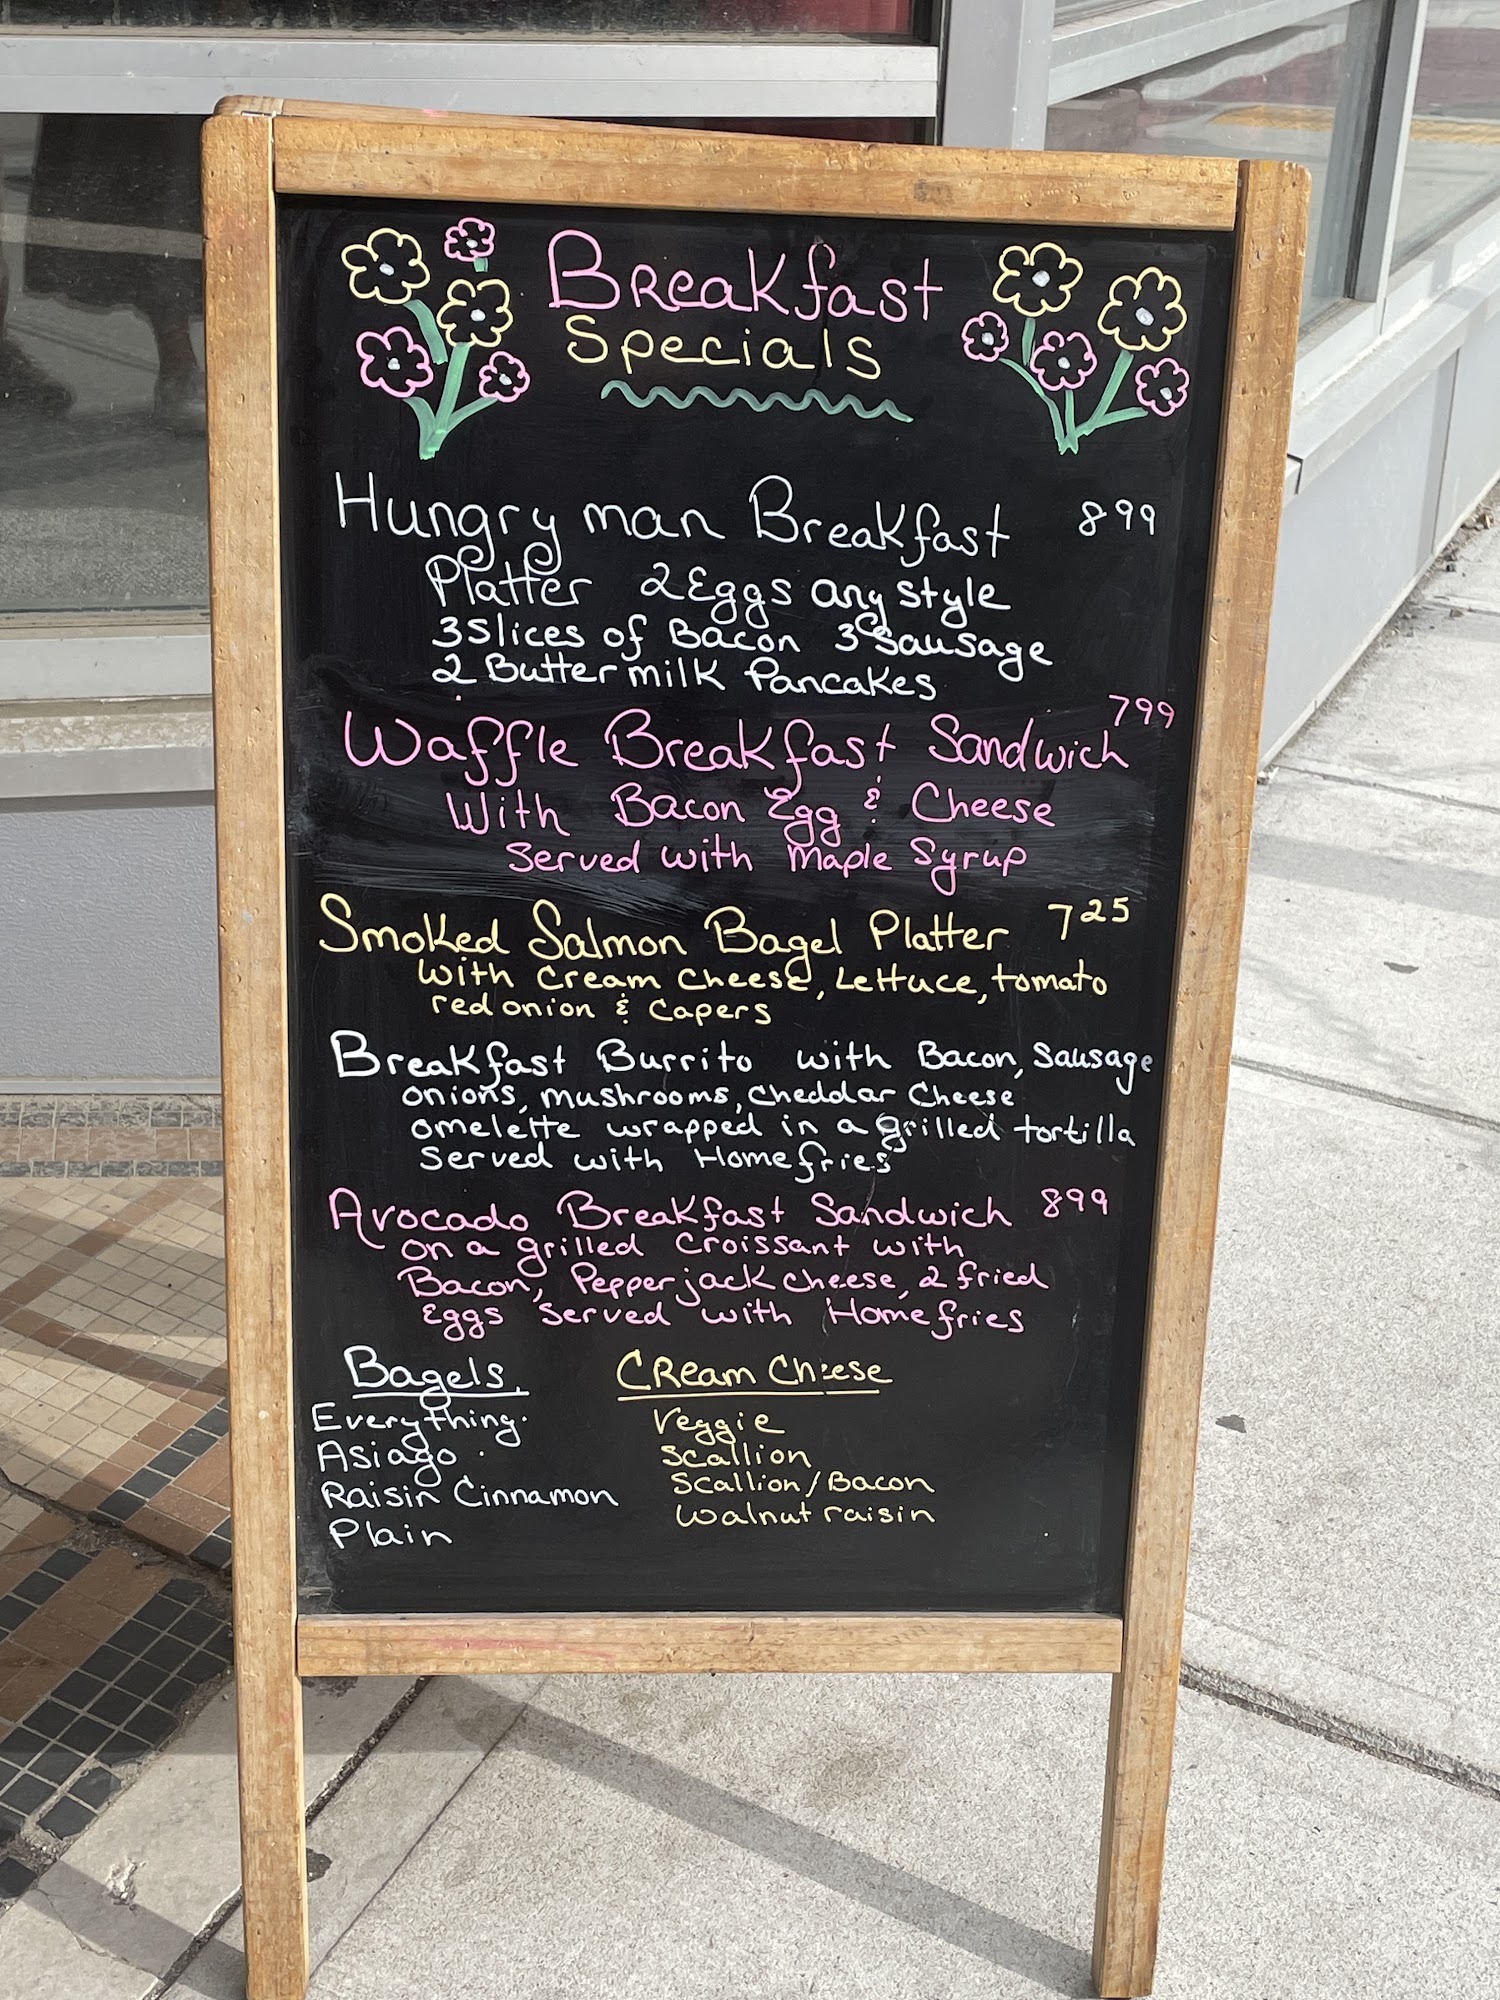 Breakfast
Specials
Hungry man Breakfast 899
Platter 2 Eggs any style
3 Slices of Bacon 3 Sausage
2 Buttermilk Pancakes
Waffle Breakfast Sandwich 799
With Bacon Egg & Cheese
Served with Maple Syrup
Smoked Salmon Bagel Platter 725
with Cream Cheese, Lettuce, tomato
red onion & Capers
Breakfast Burrito with Bacon, Sausage
onions, mushrooms, Cheddar Cheese
omelette wrapped in a grilled tortilla
Served with Homefries
Avocado Breakfast Sandwich 899
on a grilled Croissant with
Bacon, Pepper jack cheese, 2 fried
Eggs Served with Homefries
Bagels
Everything
Asiago
Raisin Cinnamon
Plain
CReam Cheese
Veggie
Scallion
Scallion/Bacon
Walnut raisin